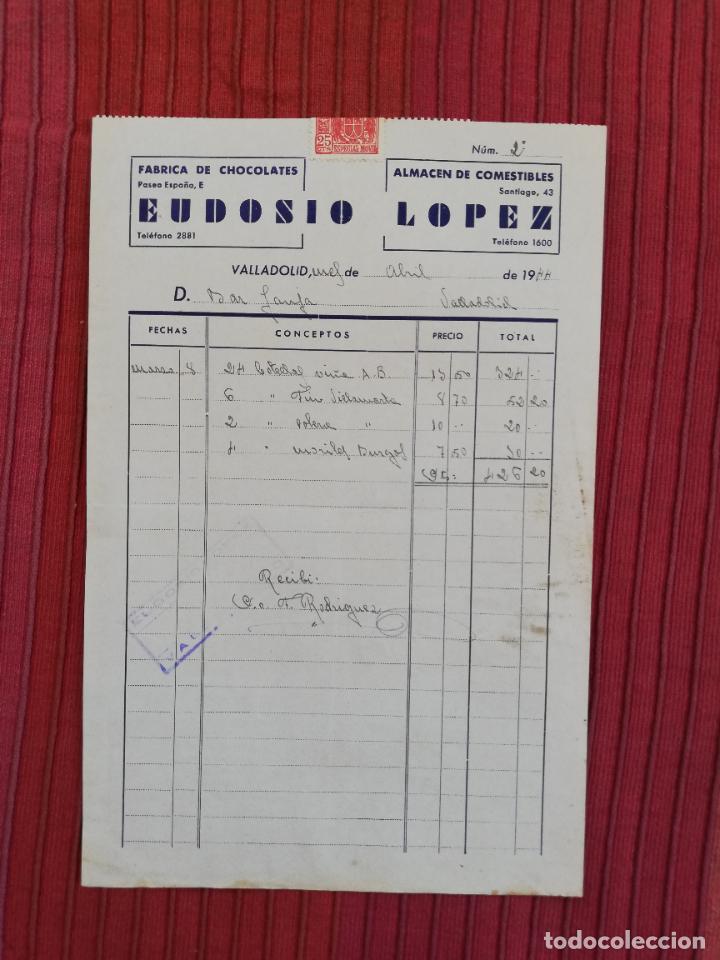 25 CTS
ESPECIAL MOVIL
Núm. 2
FABRICA DE CHOCOLATES
Paseo España, E
EUDOSIO
Teléfono 2881
ALMACEN DE COMESTIBLES
Santiago, 43
LOPEZ
Teléfono 1600
VALLADOLID, de Abril de 1944
D. Bar Valladolid
FECHAS CONCEPTOS PRECIO TOTAL
Marzo 8 24 viña A.B. 13 50 324 --
6 " Villamarta 8 70 52 20
2 " " 10 -- 20 --
4 " Burgos 7 50 30 --
426 20
Recibi:
F. Rodriguez
VAL
todocoleccion
todocoleccion.net